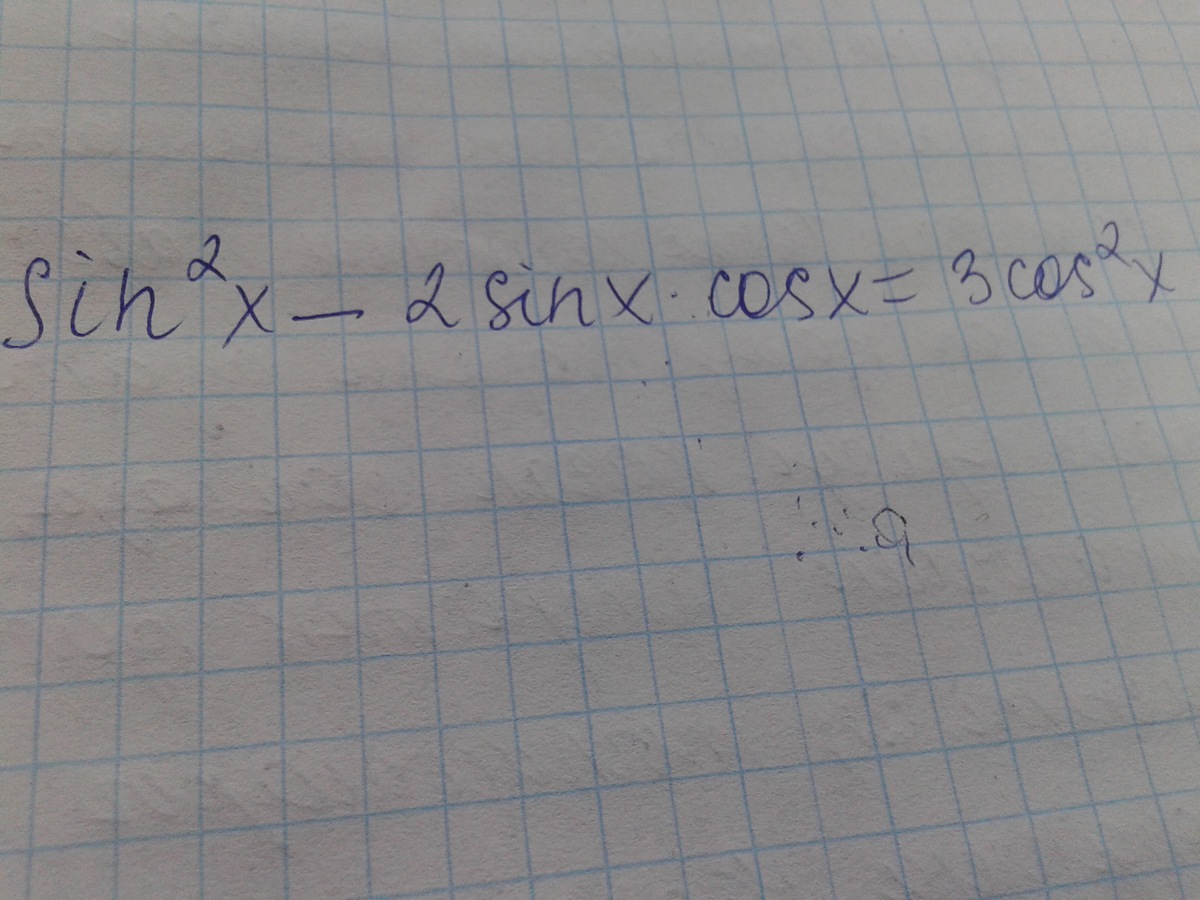 sin²x - 2 sin x · cos x = 3 cos²x